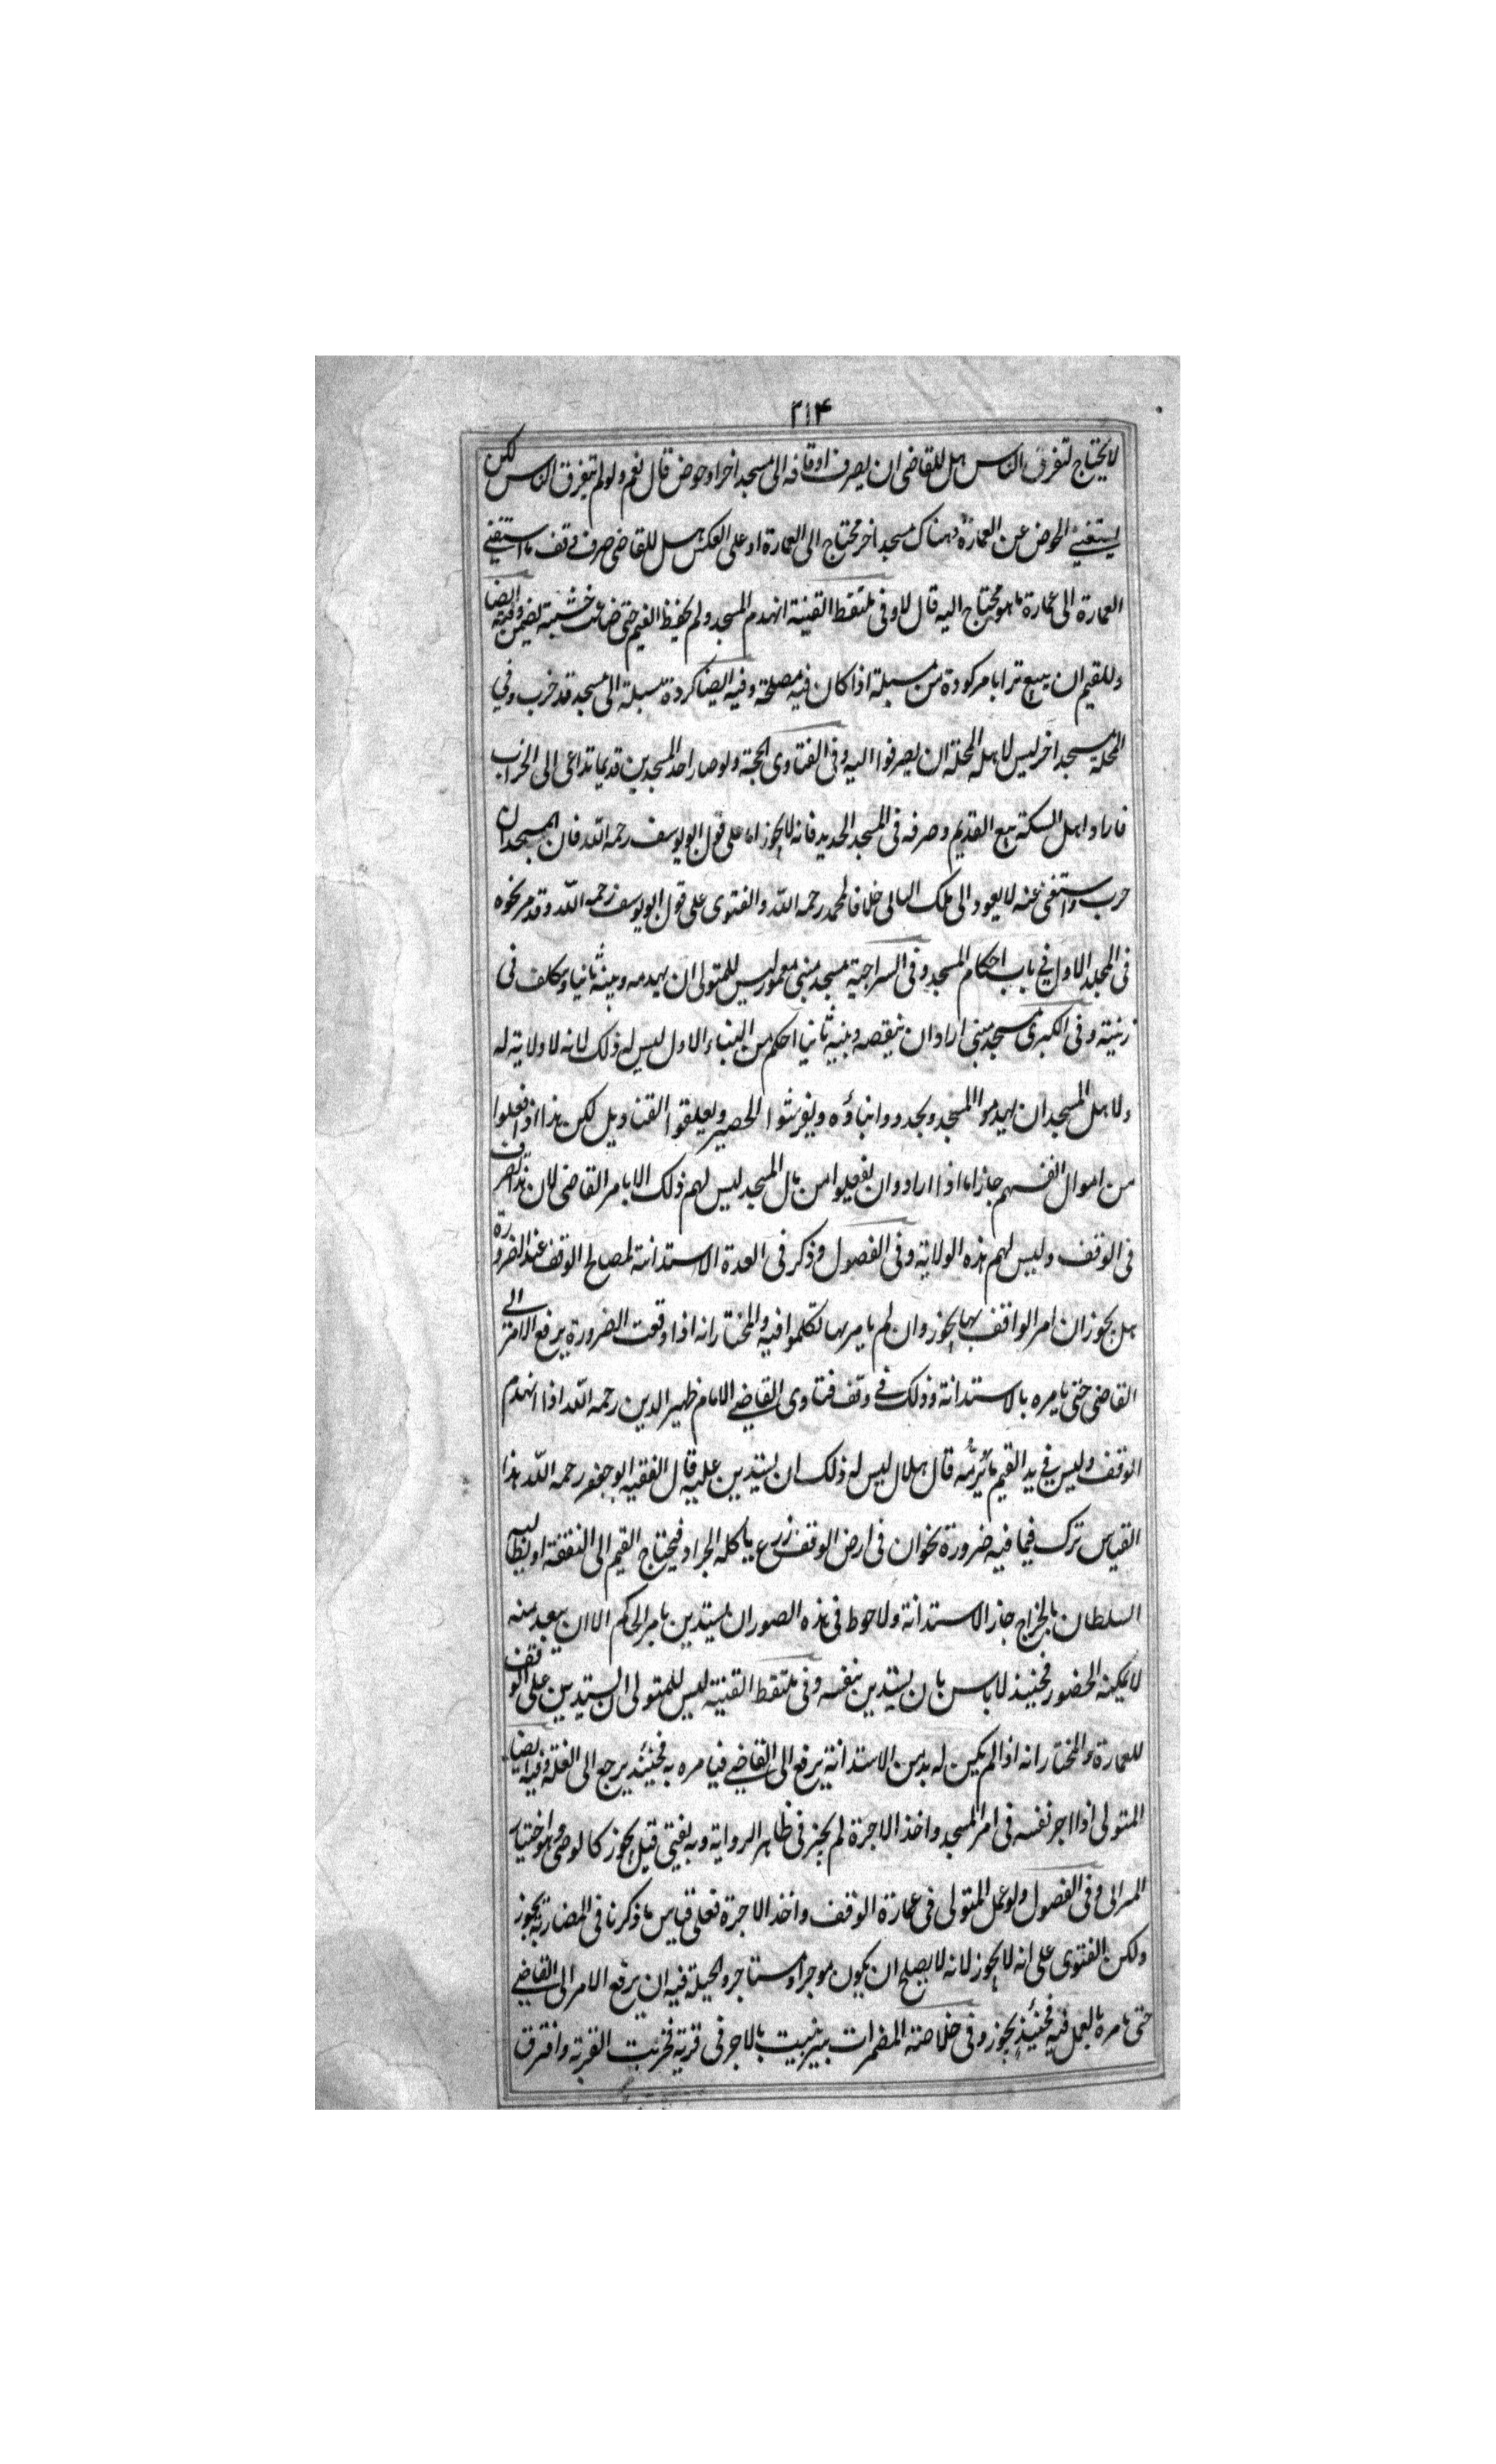 ٢١۴
لا يحتاج لتفرق الناس هل للقاضى ان يصرف اوقافه الى مسجد اخر او حوض قال نعم ولو لم يتفرق الناس لكن
يستغنى الحوض عن العمارة وهناك مسجد اخر محتاج الى العمارة او على العكس هل للقاضى صرف وقف ما استغنى
العمارة الى عمارة ما هو محتاج اليه قال لا وفى ملتقط القنية انهدم المسجد ولم يحفظ القيم حتى ضاعت خشبته يضمن وفيه ايضا
وللقيم ان يبيع ترابا مركودة من مسبلة اذا كان فيه مصلحة وفيه ايضا كردة مسبلة الى مسجد قد خرب وفي
المحلة مسجد اخر ليس لاهل المحلة ان يصرفوا اليه وفى الفتاوى الحجة ولو صار احد المسجدين قديما تداعى الى الخراب
فاراد اهل السكة بيع القديم وصرفه فى المسجد الجديد فانه لا يجوز اما على قول ابو يوسف رحمه الله فان المسجد ان
خرب واستغنى عنه لا يعود الى ملك البانى خلافا لمحمد رحمه الله والفتوى على قول ابو يوسف رحمه الله وقد مر نحوه
فى المجلد الاول في باب احكام المسجد وفى السراجية مسجد مبنى معمور ليس للمتولى ان يهدمه ويبنيه ثانيا ويكلف فى
زينته وفى الكبرى مسجد مبنى اراد ان ينقصه ويبنيه ثانيا احكم من البناء الاول ليس له ذلك لانه لا ولاية له
ولاهل المسجد ان يهدموا المسجد ويجددوا بناؤه ويفرشوا الحصير ويعلقوا القناديل لكن هذا اذا فعلوا
من اموال انفسهم جاز اما اذا ارادوا ان يفعلوا من مال المسجد ليس لهم ذلك الا بامر القاضى لان هذا تصرف
فى الوقف وليس لهم هذه الولاية وفى الفصول وذكر فى العدة الاستدانة لمصالح الوقف عند الضرورة
هل يجوز ان امر الواقف بها يجوز وان لم يامر بها تكلموا فيه والمختار انه اذا وقعت الضرورة يرفع الامر الى
القاضى حتى يامره بالاستدانة وذلك في وقف فتاوى القاضي الامام ظهير الدين رحمه الله اذا انهدم
الوقف وليس في يد القيم ما يرمه قال هلال ليس له ذلك ان يستدين عليه قال الفقيه ابو جعفر رحمه الله هذا
القياس ترك فيما فيه ضرورة نحو ان فى ارض الوقف زرع ياكله الجراد فيحتاج القيم الى النفقة او يطالبه
السلطان بالخراج جاز الاستدانة ولاحوط فى هذه الصور ان يستدين بامر الحكم الا ان يبعد منه
لا يمكنه الحضور فحينئذ لا باس بان يستدين بنفسه وفى ملتقط القنية ليس للمتولى ان يستدين على الوقف
للعمارة والمختار انه اذا لم يكن له بد من الاستدانة يرفع الى القاضي فيامره به فحينئذ يرجع الى الغلة وفيه ايضا
المتولى اذا اجر نفسه فى امر المسجد واخذ الاجرة لم يجز فى ظاهر الرواية وبه يفتى قيل يجوز كالوصى وهو اختيار
وفى الفصول ولو عمل المتولى فى عمارة الوقف واخذ الاجرة فعلى قياس ما ذكرنا فى المضاربة يجوز
ولكن الفتوى على انه لا يجوز لانه لا يصلح ان يكون موجرا ومستاجرا والحيلة فيه ان يرفع الامر الى القاضي
حتى يامره بالعمل فيه فحينئذ يجوز وفى خلاصة المضمرات بير بنيت بالاجر فى قرية فخربت القرية وافترق